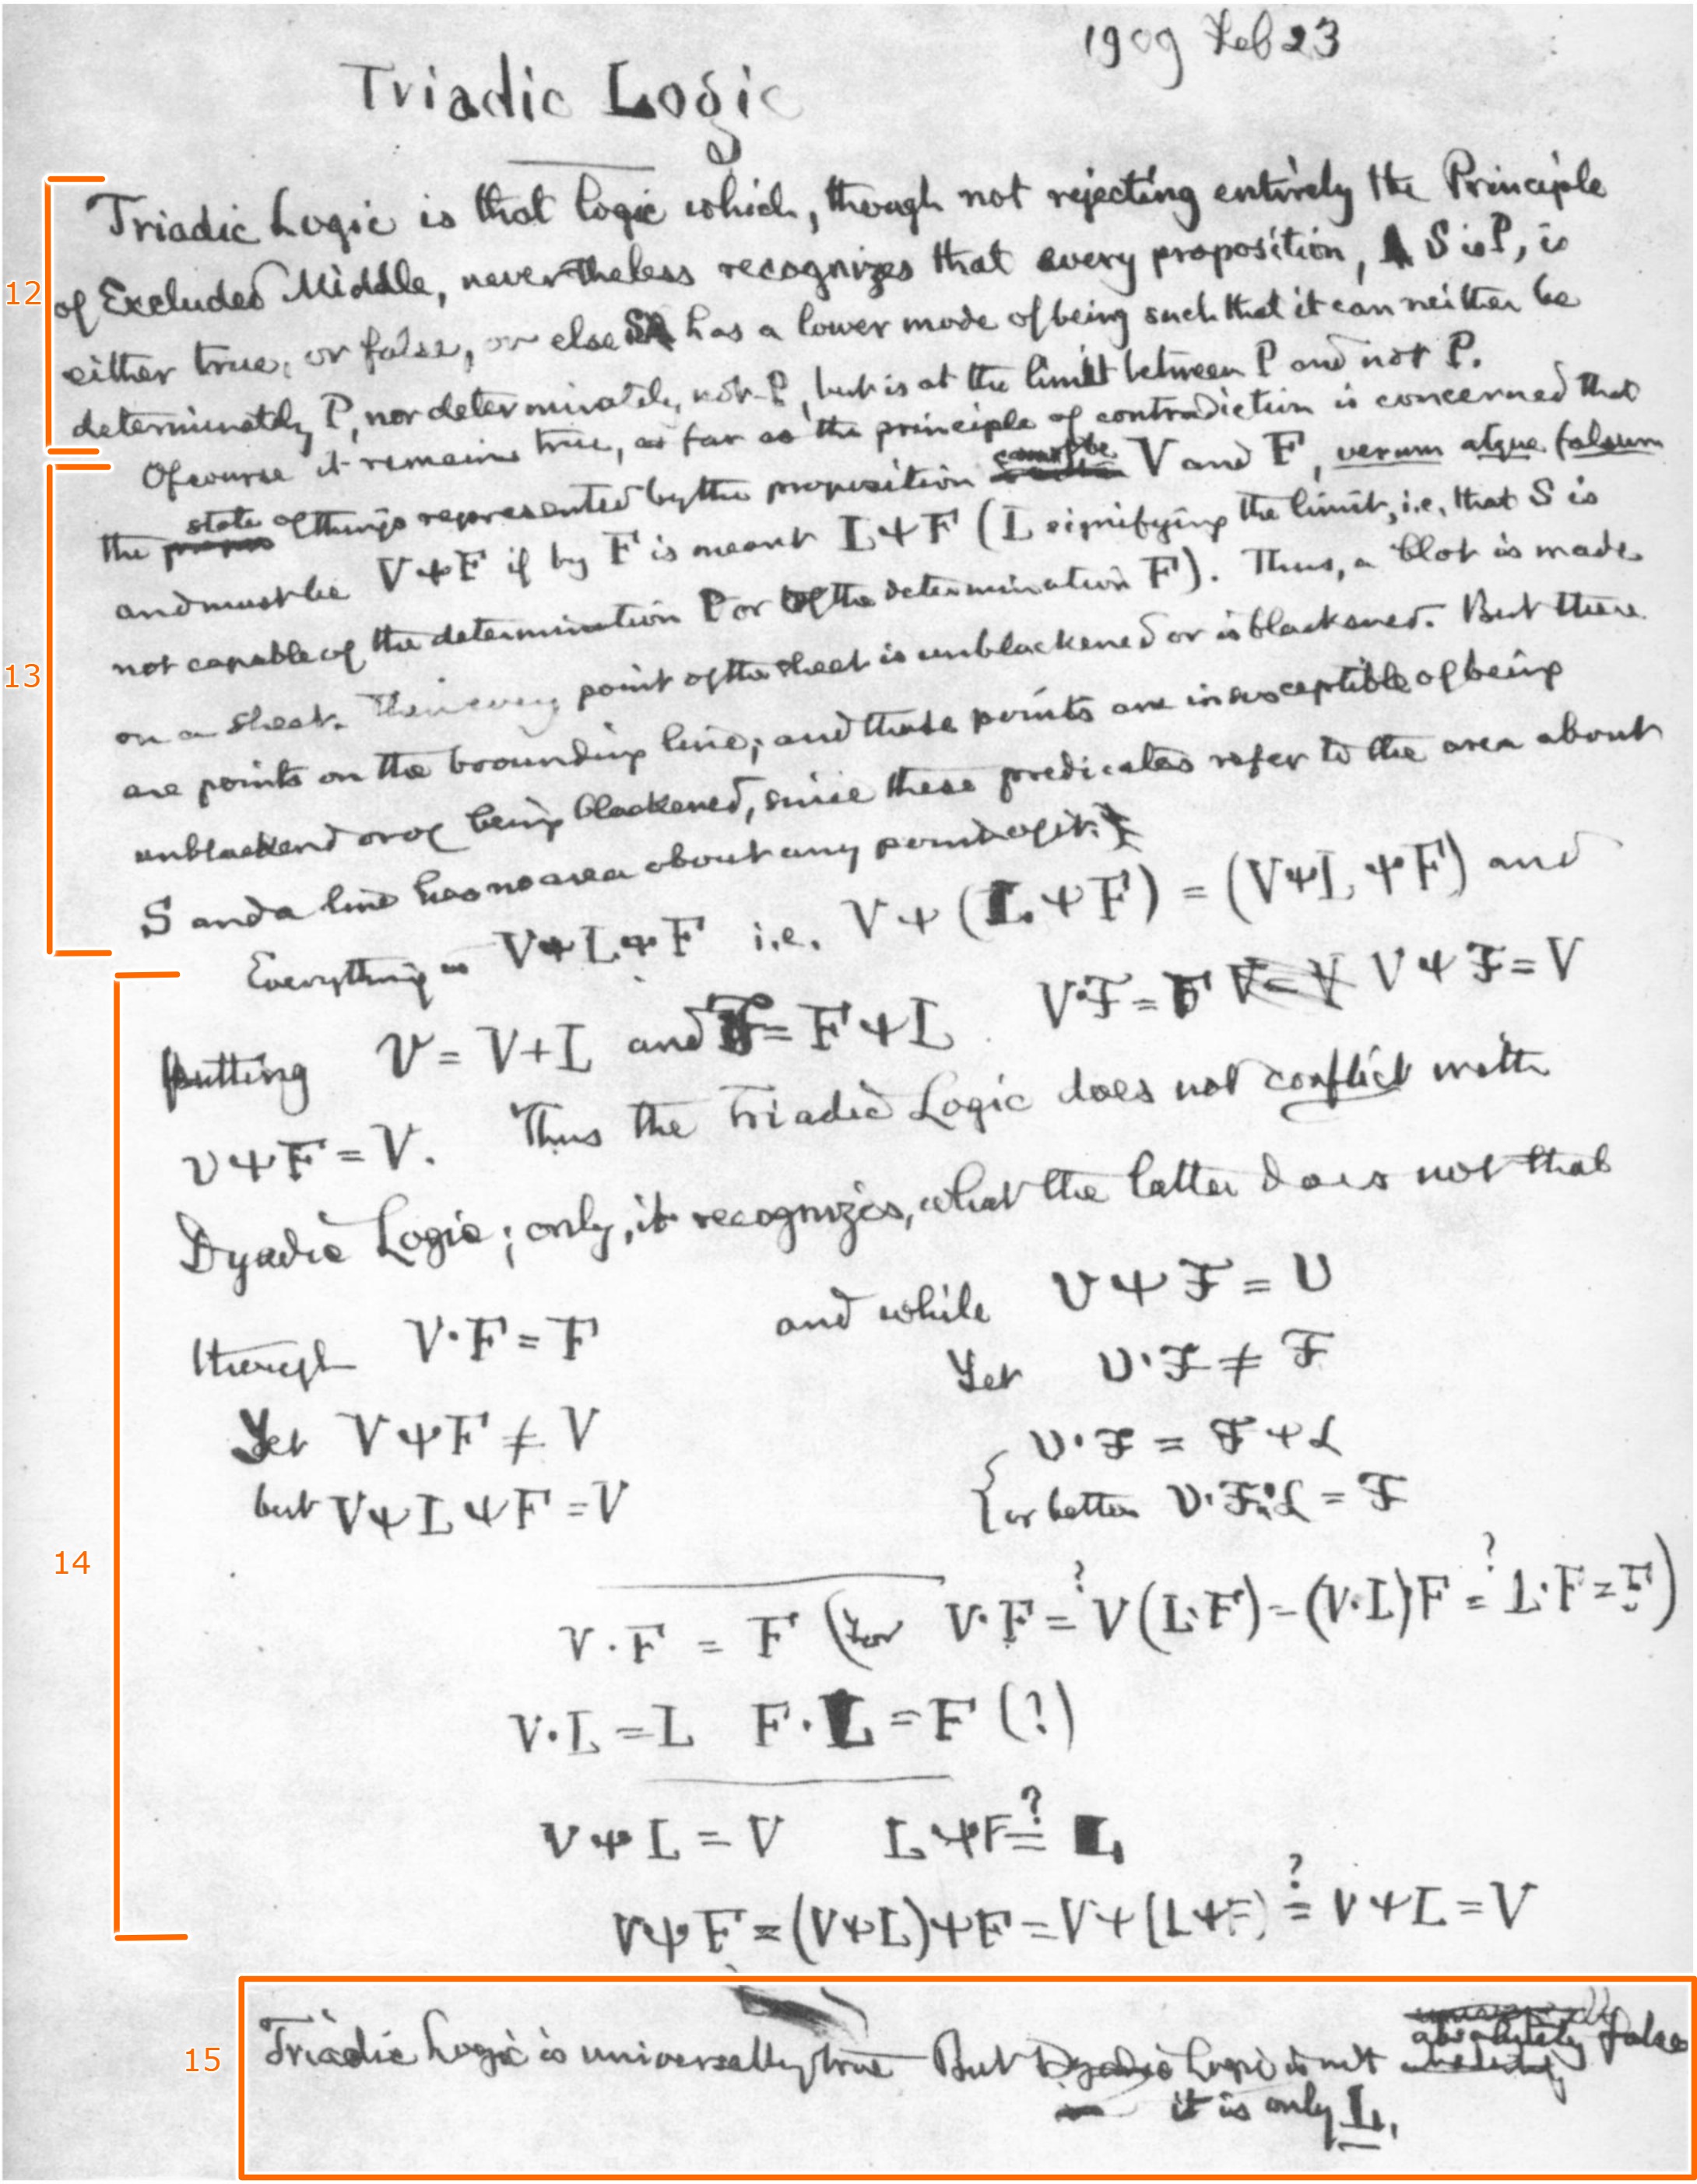 1909 Feb 23
Triadic Logic
12
Triadic Logic is that logic which, though not rejecting entirely the Principle
of Excluded Middle, nevertheless recognizes that every proposition, S is P, is
either true, or false, or else S has a lower mode of being such that it can neither be
determinately P, nor determinately not-P, but is at the limit between P and not P.
13
Of course it remains true, as far as the principle of contradiction is concerned that
the state of things represented by the proposition cannot be V and F, verum atque falsum
and must be VΨF if by F is meant LΨF (L signifying the limit, i.e. that S is
not capable of the determination P or of the determination F). Thus, a blot is made
on a sheet. Then every point of the sheet is unblackened or is blackened. But there
are points on the boounding line; and those points are insusceptible of being
unblackend or of being blackened, since these predicates refer to the area about
S and a line has no area about any point of it.
14
Everything is VΨLΨF i.e. VΨ(LΨF) = (VΨLΨF) and
putting 𝒱 = V+L and ℱ = FΨL. V·ℱ = F VΨℱ = V
𝒱ΨF = V. Thus the Triadic Logic does not conflict with
Dyadic Logic; only, it recognizes, what the latter does not that
though V·F = F and while 𝒱Ψℱ = 𝒱
Yet 𝒱·ℱ ≠ ℱ
Yet VΨF ≠ V
𝒱·ℱ = ℱΨℒ
but VΨLΨF = V
{or better 𝒱·ℱ·ℒ = ℱ
V·F = F (For V·F =? V(L·F) = (V·L)F =? L·F = F)
V·L = L F·L = F (?)
VΨL = V LΨF =? L
VΨF = (VΨL)ΨF = VΨ(LΨF) =? VΨL = V
15
Triadic Logic is universally true But Dyadic Logic is not absolutely false
it is only L.